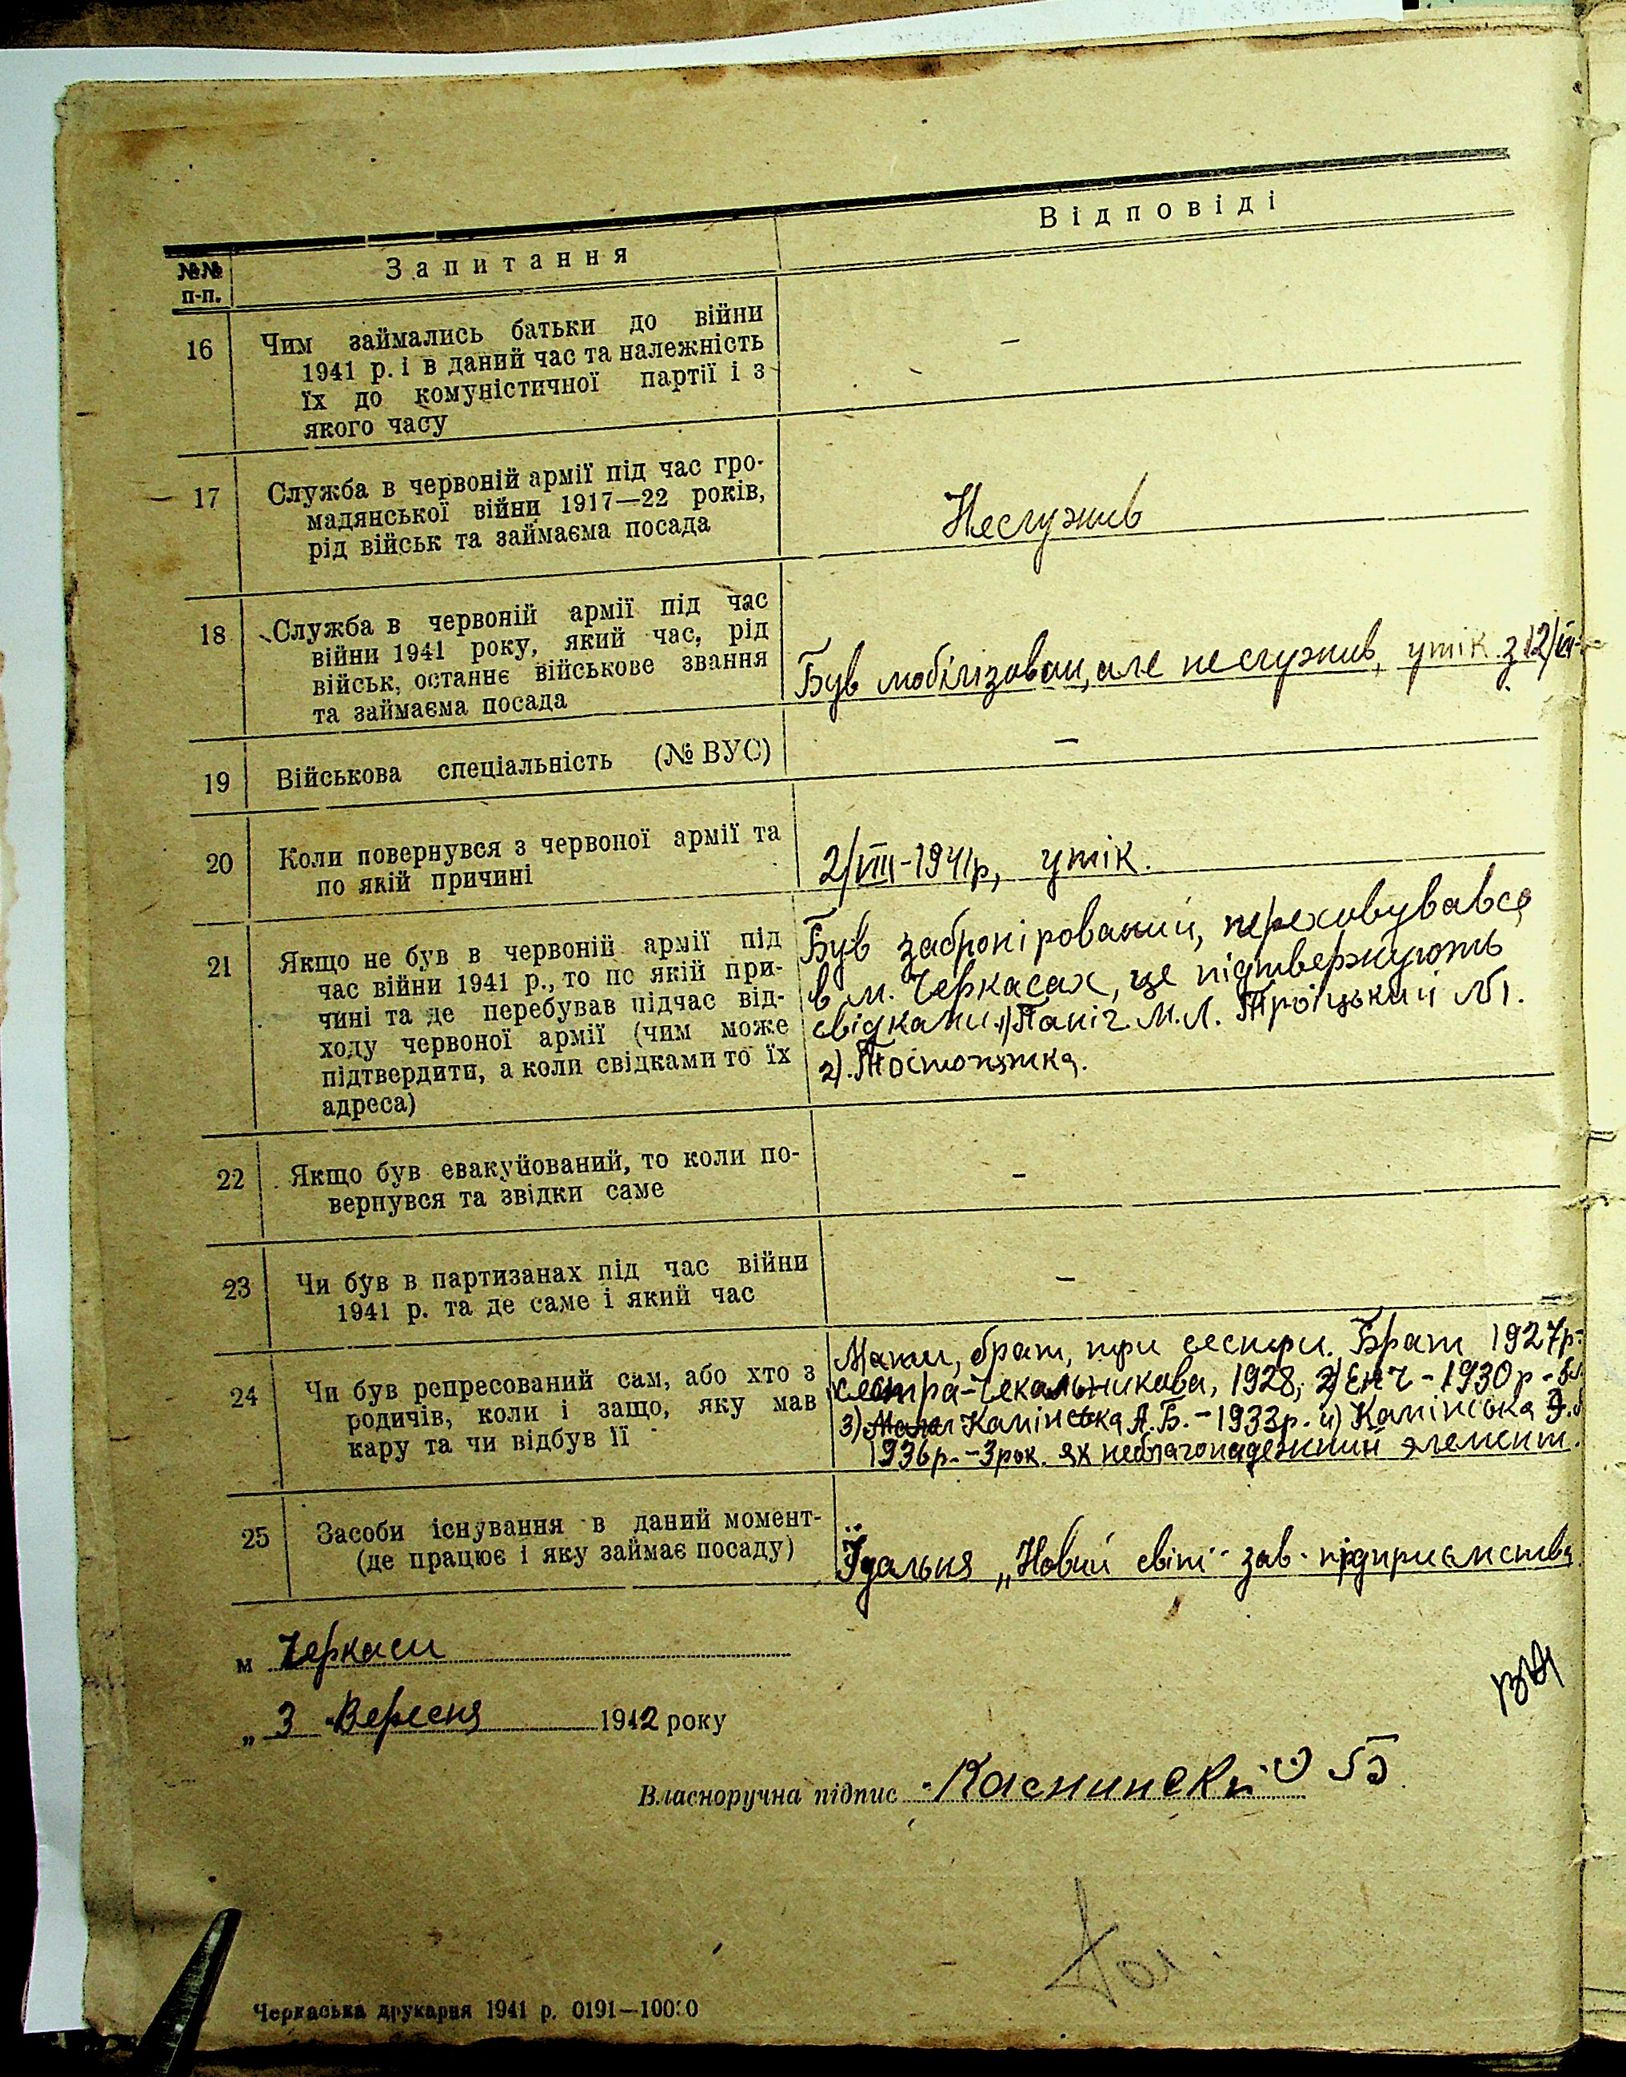 №№ п-п.
Запитання
Відповіді
16
Чим займались батьки до війни
1941 р. і в даний час та належність
їх до комуністичної партії і з
якого часу
–
17
Служба в червоній армії під час гро-
мадянської війни 1917—22 років,
рід військ та займаєма посада
Неслужив
18
Служба в червоній армії під час
війни 1941 року, який час, рід
військ, останнє військове звання
та займаєма посада
Був мобілізован, але не служив, утік з 12/VII-
19
Військова спеціальність (№ ВУС)
–
20
Коли повернувся з червоної армії та
по якій причині
2/VIII-1941р, утік.
21
Якщо не був в червоній армії під
час війни 1941 р., то по якій при-
чині та де перебував підчас від-
ходу червоної армії (чим може
підтвердити, а коли свідками то їх
адреса)
Був забронірований, переховувався
в м. Черкасах, це підтвержують
свідками. 1) Папіч М.Л. Троіцький
2). Тостопятка.
22
Якщо був евакуйований, то коли по-
вернувся та звідки саме
–
23
Чи був в партизанах під час війни
1941 р. та де саме і який час
–
24
Чи був репресований сам, або хто з
родичів, коли і защо, яку мав
кару та чи відбув її
Мати, брат, три сестри. Брат 1927р-
сестра-Чекальникова, 1928; 2) - 1930р -
3) Камінська А.Б. - 1933р. 4) Камінська Э.
1936р. - 3 рок. як неблагонадежний элемент.
25
Засоби існування в даний момент-
(де працює і яку займає посаду)
Їдальня „Новий світ" зав. підприємства
м Черкаси
„ 3 " Вересня 1942 року
Власноручна підпис
Черкаська друкарня 1941 р. 0191—10000